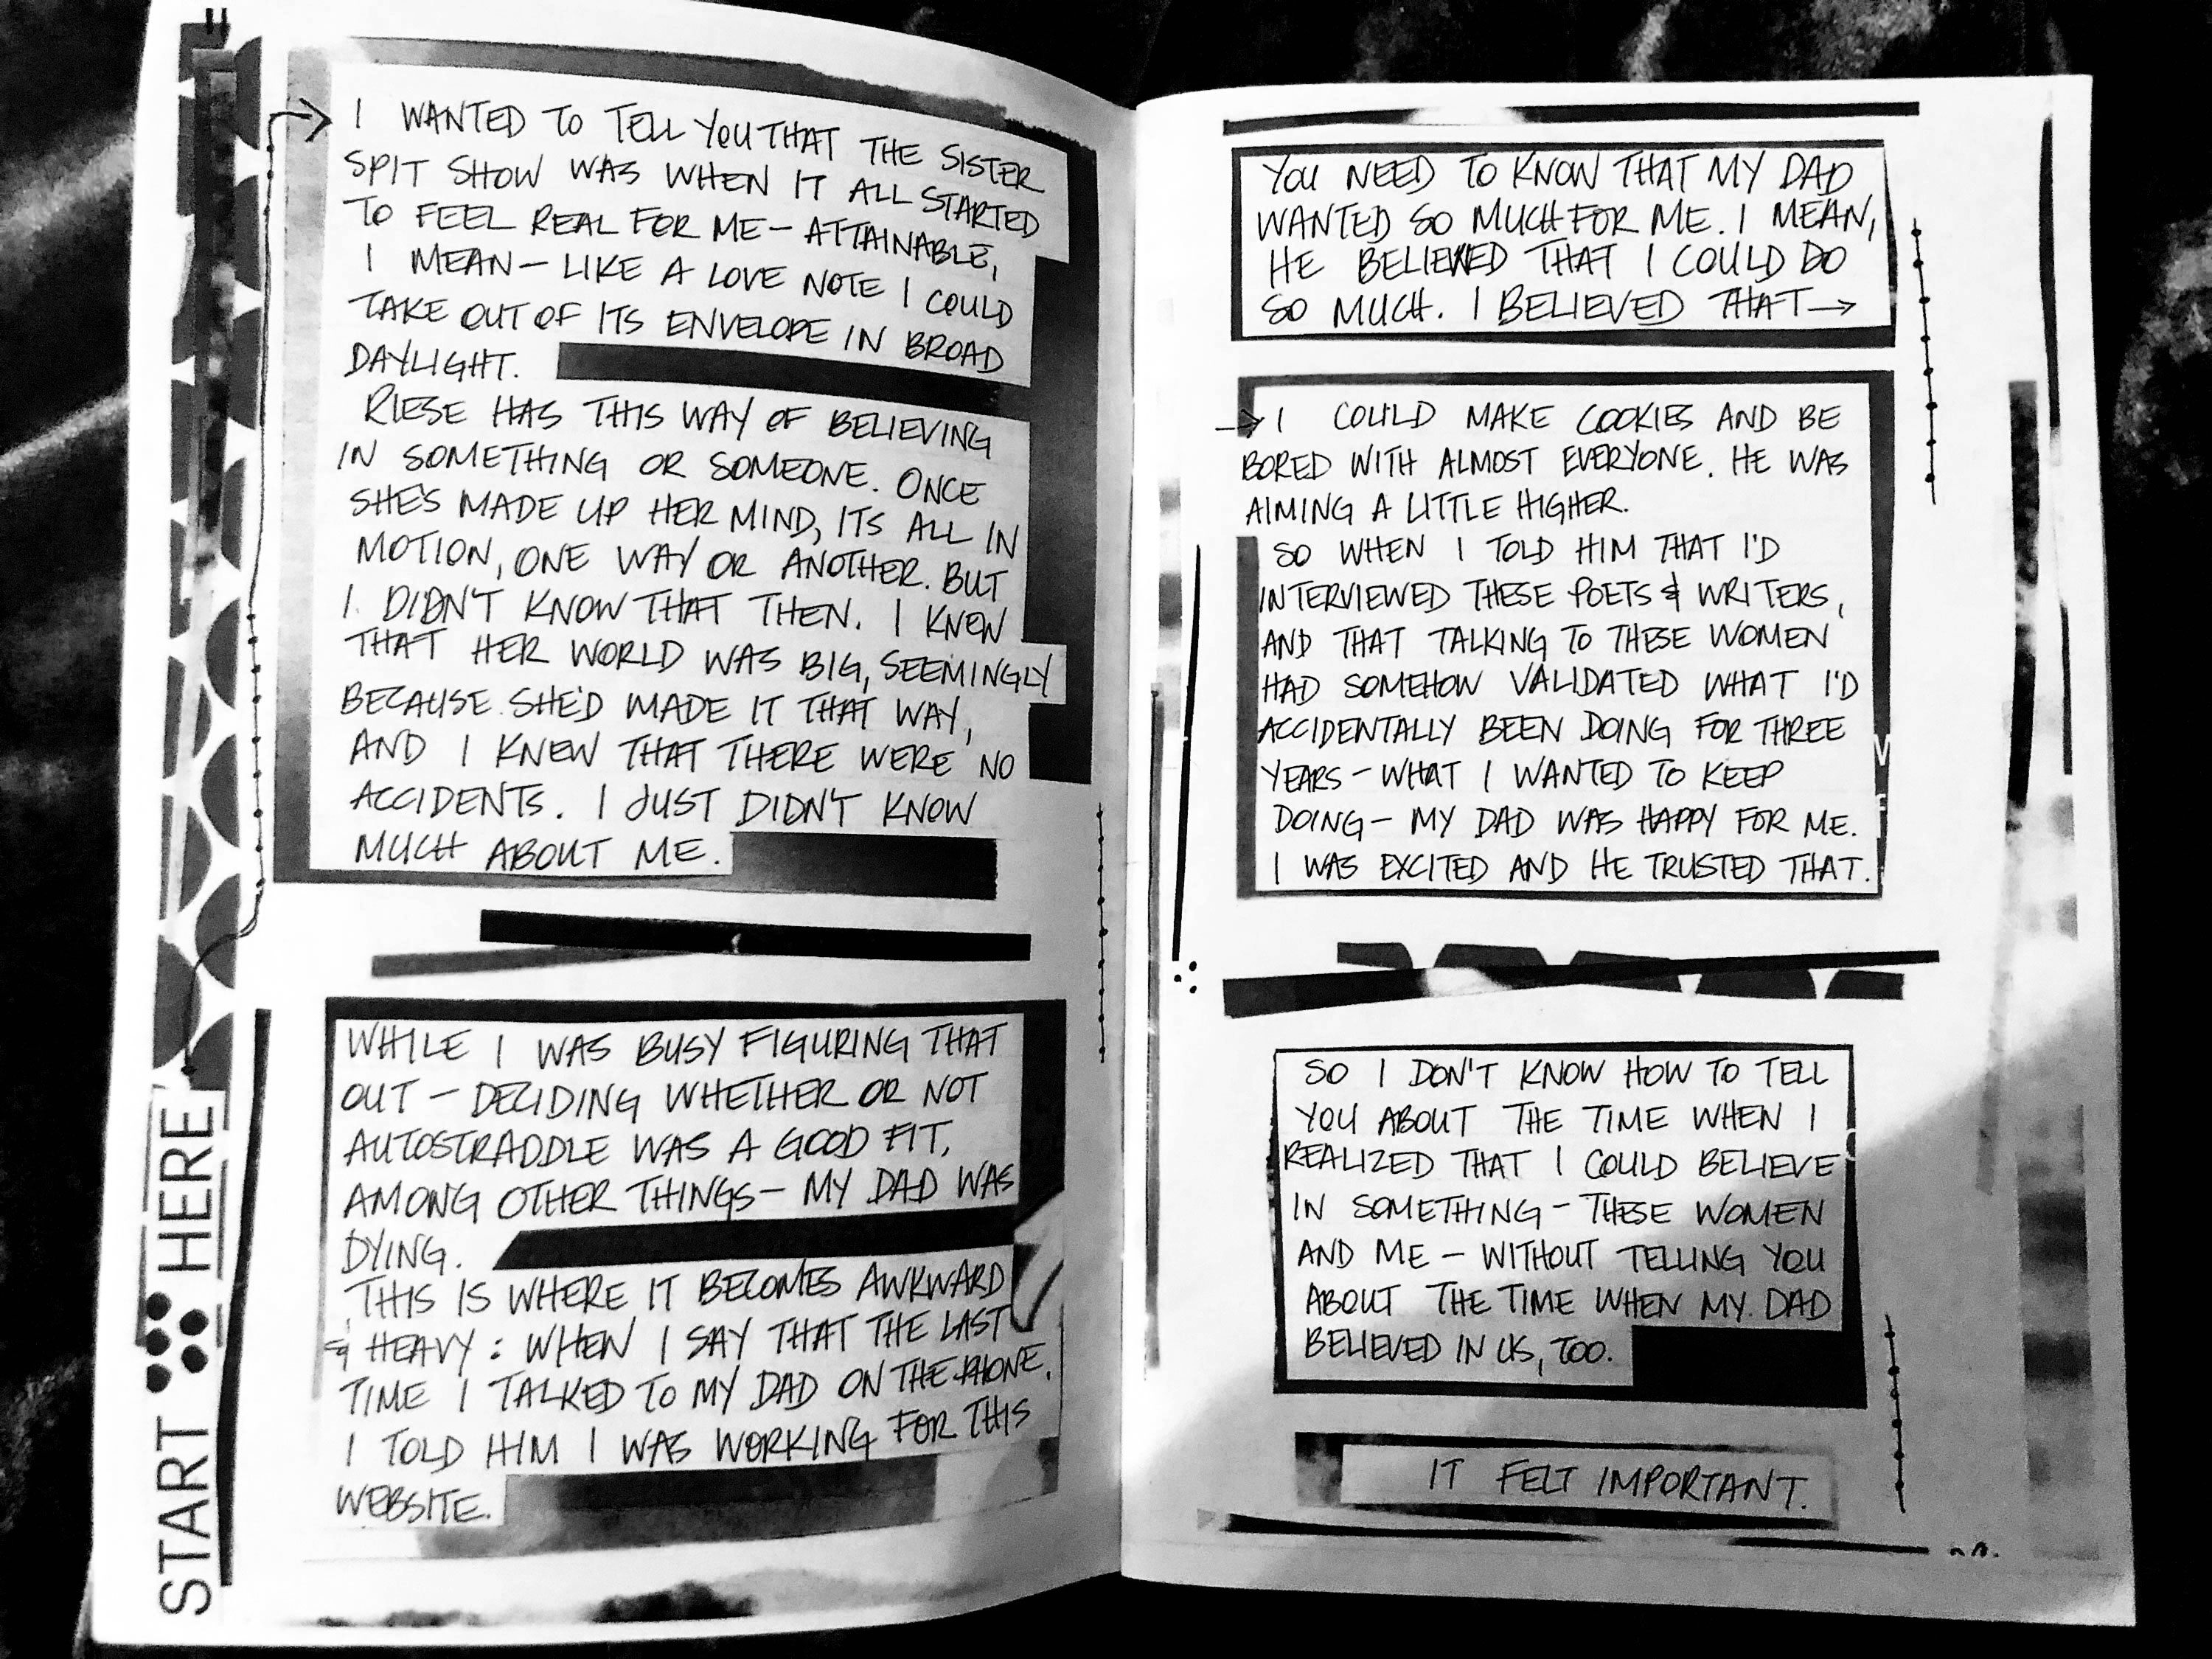 START HERE
I WANTED TO TELL YOU THAT THE SISTER
SPIT SHOW WAS WHEN IT ALL STARTED
TO FEEL REAL FOR ME — ATTAINABLE,
I MEAN — LIKE A LOVE NOTE I COULD
TAKE OUT OF ITS ENVELOPE IN BROAD
DAYLIGHT.
RIESE HAS THIS WAY OF BELIEVING
IN SOMETHING OR SOMEONE. ONCE
SHE'S MADE UP HER MIND, ITS ALL IN
MOTION, ONE WAY OR ANOTHER. BUT
I DIDN'T KNOW THAT THEN. I KNEW
THAT HER WORLD WAS BIG, SEEMINGLY
BECAUSE SHE'D MADE IT THAT WAY,
AND I KNEW THAT THERE WERE NO
ACCIDENTS. I JUST DIDN'T KNOW
MUCH ABOUT ME.
WHILE I WAS BUSY FIGURING THAT
OUT — DECIDING WHETHER OR NOT
AUTOSTRADDLE WAS A GOOD FIT,
AMONG OTHER THINGS — MY DAD WAS
DYING.
THIS IS WHERE IT BECOMES AWKWARD
& HEAVY: WHEN I SAY THAT THE LAST
TIME I TALKED TO MY DAD ON THE PHONE,
I TOLD HIM I WAS WORKING FOR THIS
WEBSITE.
YOU NEED TO KNOW THAT MY DAD
WANTED SO MUCH FOR ME. I MEAN,
HE BELIEVED THAT I COULD DO
SO MUCH. I BELIEVED THAT →
→ I COULD MAKE COOKIES AND BE
BORED WITH ALMOST EVERYONE. HE WAS
AIMING A LITTLE HIGHER.
SO WHEN I TOLD HIM THAT I'D
INTERVIEWED THESE POETS & WRITERS,
AND THAT TALKING TO THESE WOMEN
HAD SOMEHOW VALIDATED WHAT I'D
ACCIDENTALLY BEEN DOING FOR THREE
YEARS — WHAT I WANTED TO KEEP
DOING — MY DAD WAS HAPPY FOR ME.
I WAS EXCITED AND HE TRUSTED THAT.
SO I DON'T KNOW HOW TO TELL
YOU ABOUT THE TIME WHEN I
REALIZED THAT I COULD BELIEVE
IN SOMETHING — THESE WOMEN
AND ME — WITHOUT TELLING YOU
ABOUT THE TIME WHEN MY DAD
BELIEVED IN US, TOO.
IT FELT IMPORTANT.